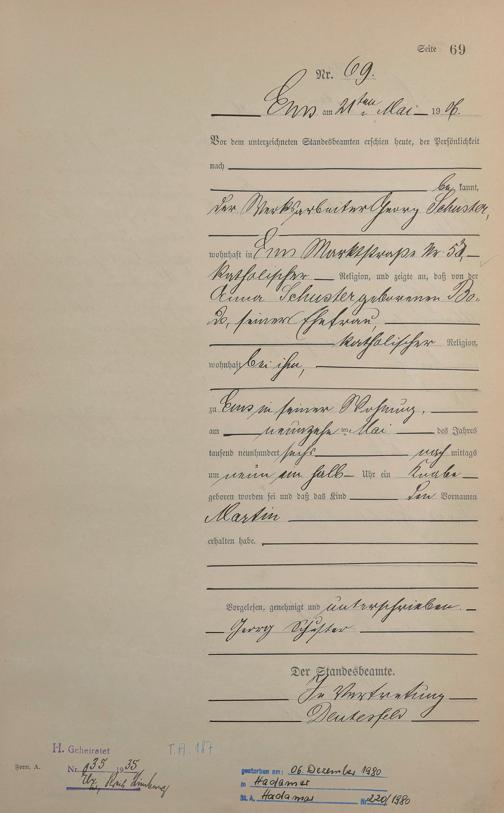 Seite 69
Nr. 69.
Ems am 21ten Mai 1906.
Vor dem unterzeichneten Standesbeamten erschien heute, der Persönlichkeit
nach
be kannt,
der Werksarbeiter Georg Schuster,
wohnhaft in Ems Marktstraße Nr 53,
katholischer Religion, und zeigte an, daß von der
Anna Schuster geborenen
seiner Ehefrau,
katholischer Religion,
wohnhaft bei ihm,
zu Ems in seiner Wohnung,
am neunzehn ten Mai des Jahres
tausend neunhundert sechs nach mittags
um neun ein halb Uhr ein Knabe
geboren worden sei und daß das Kind den Vornamen
Martin
erhalten habe.
Vorgelesen, genehmigt und unterschrieben.
Georg Schuster
Der Standesbeamte.
In Vertretung
H. Geheiratet T.A. 187
Form. A. Nr. 935 1935
gestorben am: 06. Dezember 1980
in Hadamar
St. A. Hadamar Nr. 220/1980